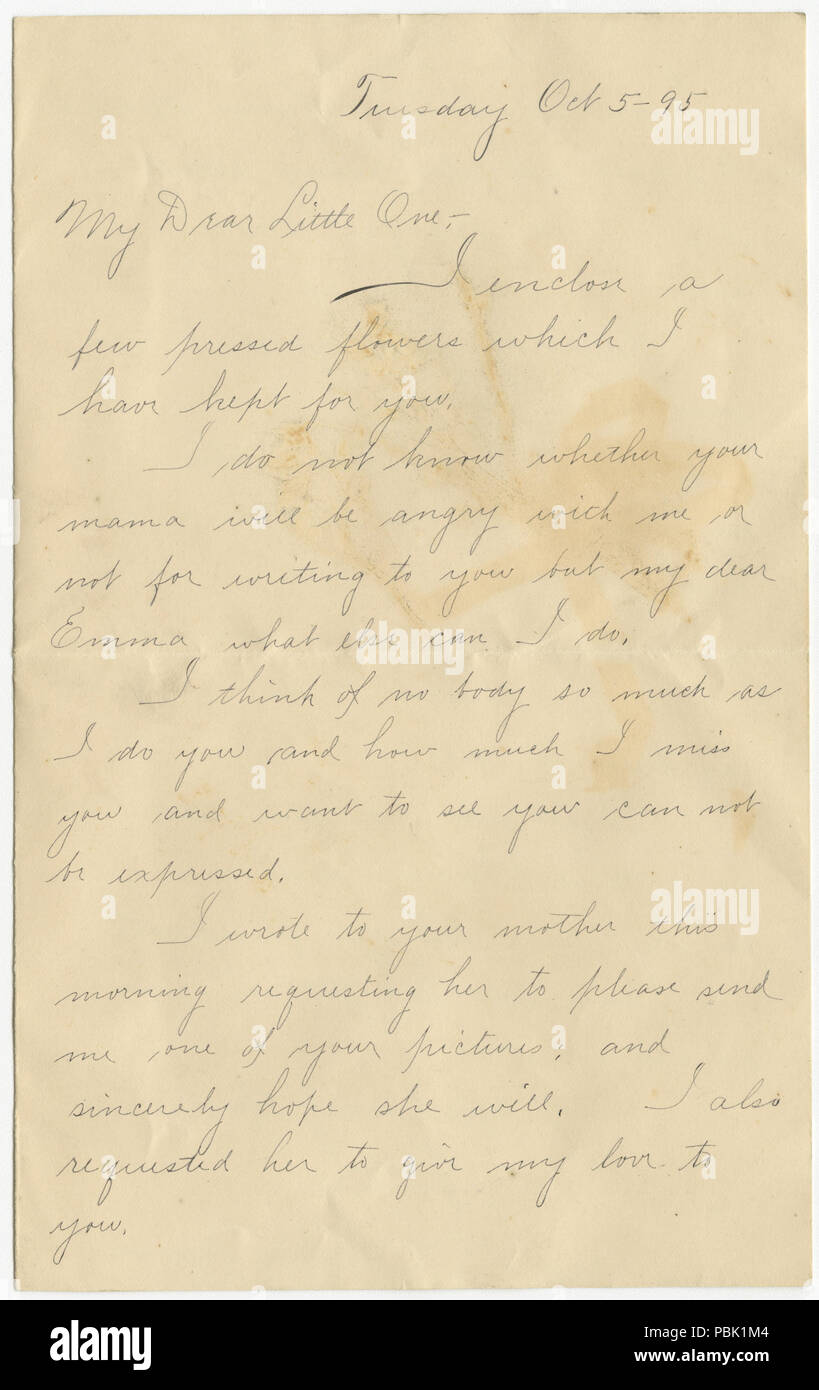 Tuesday Oct 5-95
My Dear Little One,-
I enclose a
few pressed flowers which I
have kept for you.
I do not know whether your
mama will be angry with me or
not for writing to you but my dear
Emma what else can I do.
I think of no body so much as
I do you and how much I miss
you and want to see you can not
be expressed.
I wrote to your mother this
morning requesting her to please send
me one of your pictures, and
sincerely hope she will. I also
requested her to give my love to
you.
alamy
alamy
alamy
a
a
a
a
a
a
a
a
alamy
Image ID: PBK1M4
www.alamy.com